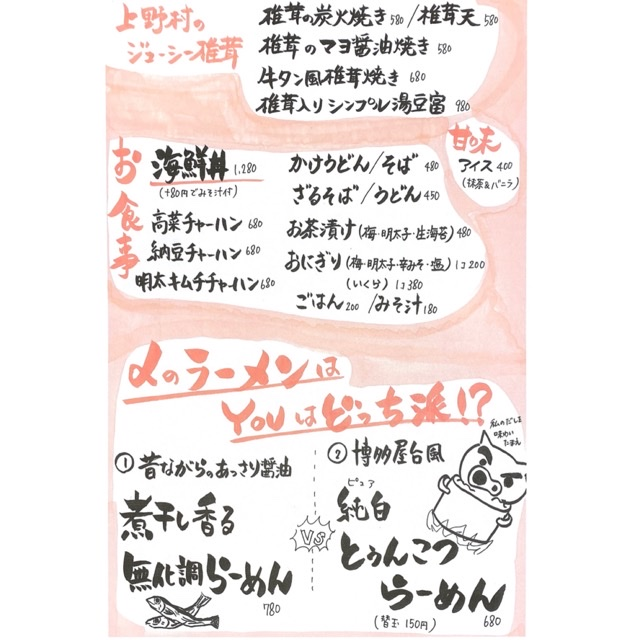 上野村の
ジューシー椎茸
椎茸の炭火焼き 580 / 椎茸天 580
椎茸のマヨ醤油焼き 580
牛タン風椎茸焼き 680
椎茸入りシンプル湯豆富 980
お食事
海鮮丼 1,280
(+80円でみそ汁付)
高菜チャーハン 680
納豆チャーハン 680
明太キムチチャーハン 680
かけうどん/そば 480
ざるそば/うどん 450
お茶漬け (梅・明太子・生海苔) 480
おにぎり (梅・明太子・辛みそ・塩) 1コ 200
(いくら) 1コ 380
ごはん 200 / みそ汁 180
甘味
アイス 400
(抹茶&バニラ)
〆のラーメンは
YOUはどっち派!?
① 昔ながらのあっさり醤油
煮干し香る
無化調らーめん
780
VS
② 博多屋台風
ピュア
純白
とぅんこつ
らーめん
(替玉 150円) 680
私のだしま
味わい
たまえ